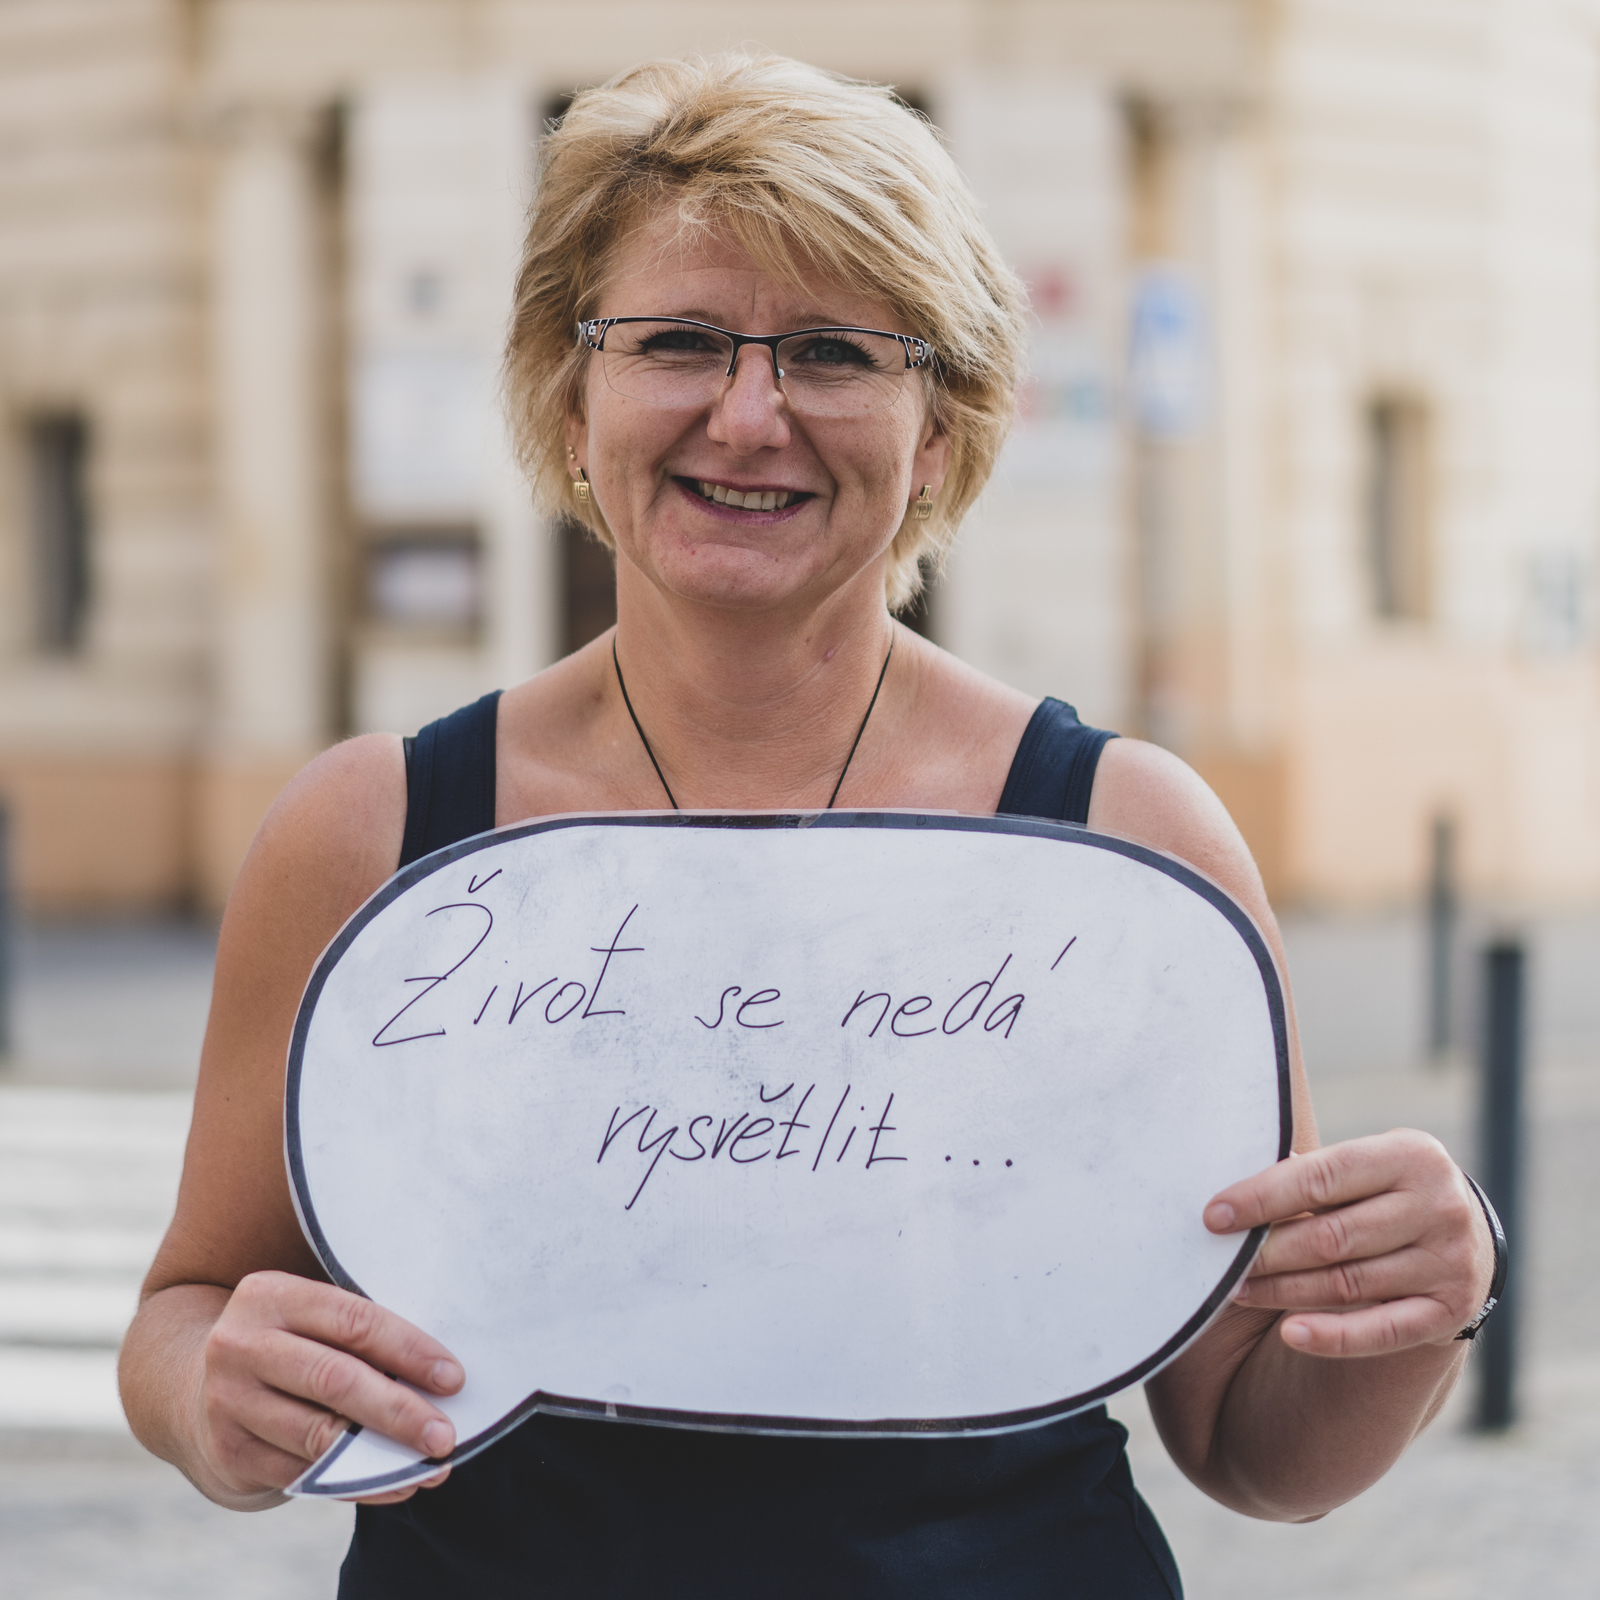 Život se nedá
vysvětlit...